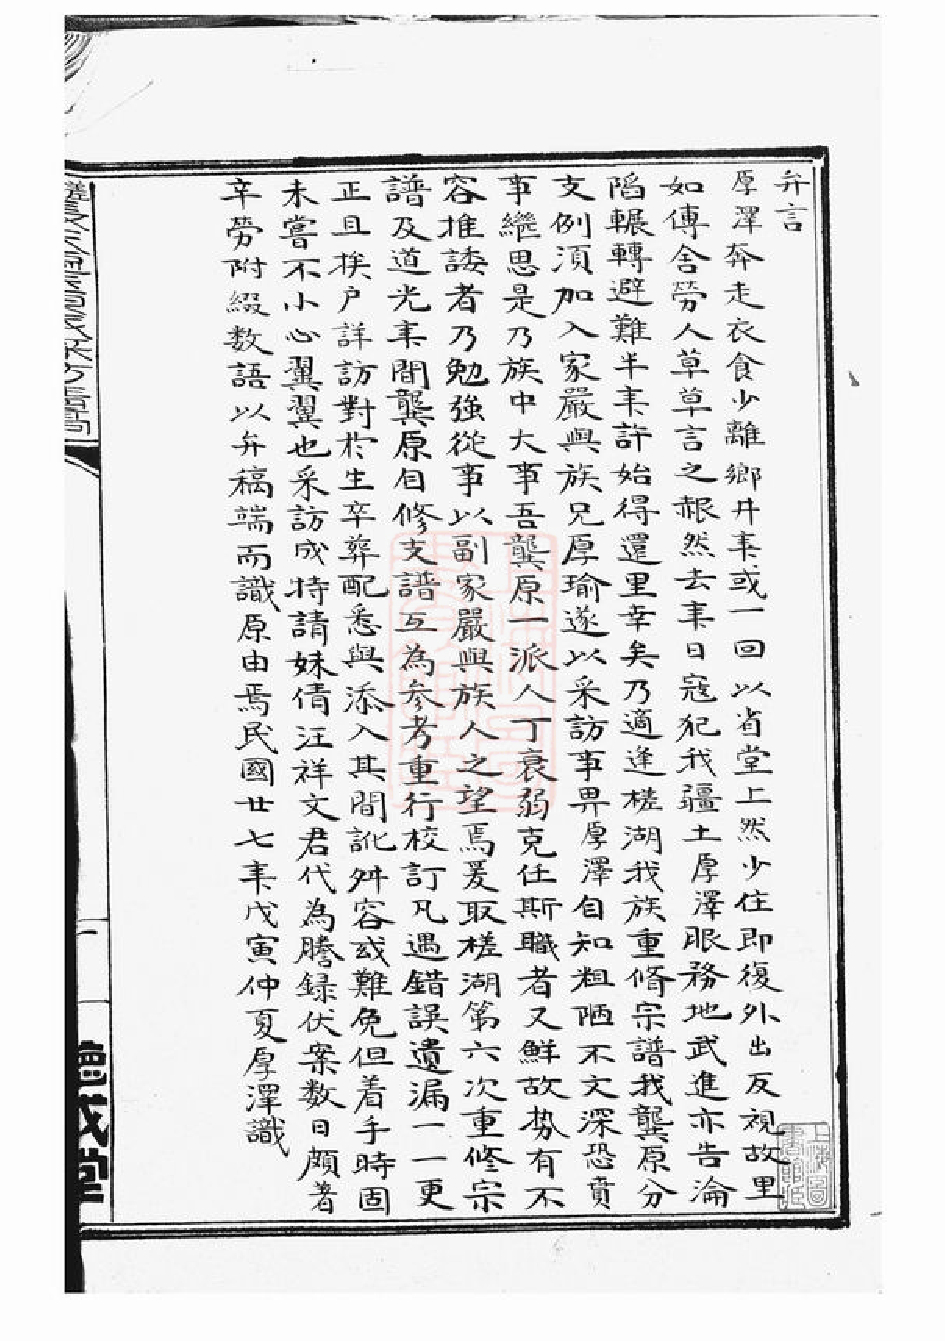 弁言
厚澤奔走衣食少離鄉井年或一回以省堂上然少住即復外出反視故里
如傳舍勞人草草言之赧然去年日寇犯我疆土厚澤服務地武進亦告淪
陷輾轉避難半年許始得還里幸矣乃適逢槎湖我族重脩宗譜我龔原分
支例須加入家嚴與族兄厚瑜遂以采訪事畀厚澤自知粗陋不文深恐賁
事繼思是乃族中大事吾龔原一派人丁衰弱克任斯職者又鮮故势有不
容推諉者乃勉強從事以副家嚴與族人之望焉爰取槎湖第六次重修宗
譜及道光年間龔原自修支譜互為參考重行校訂凡遇錯誤遺漏一一更
正且挨户詳訪對於生卒葬配悉與添入其間訛舛容或難免但着手時固
未嘗不小心翼翼也采訪成特請妹倩汪祥文君代為謄録伏案数日頗著
辛勞附綴数語以弁稿端而識原由焉民國廿七年戊寅仲夏厚澤識
德戍堂
上海圖書館臧